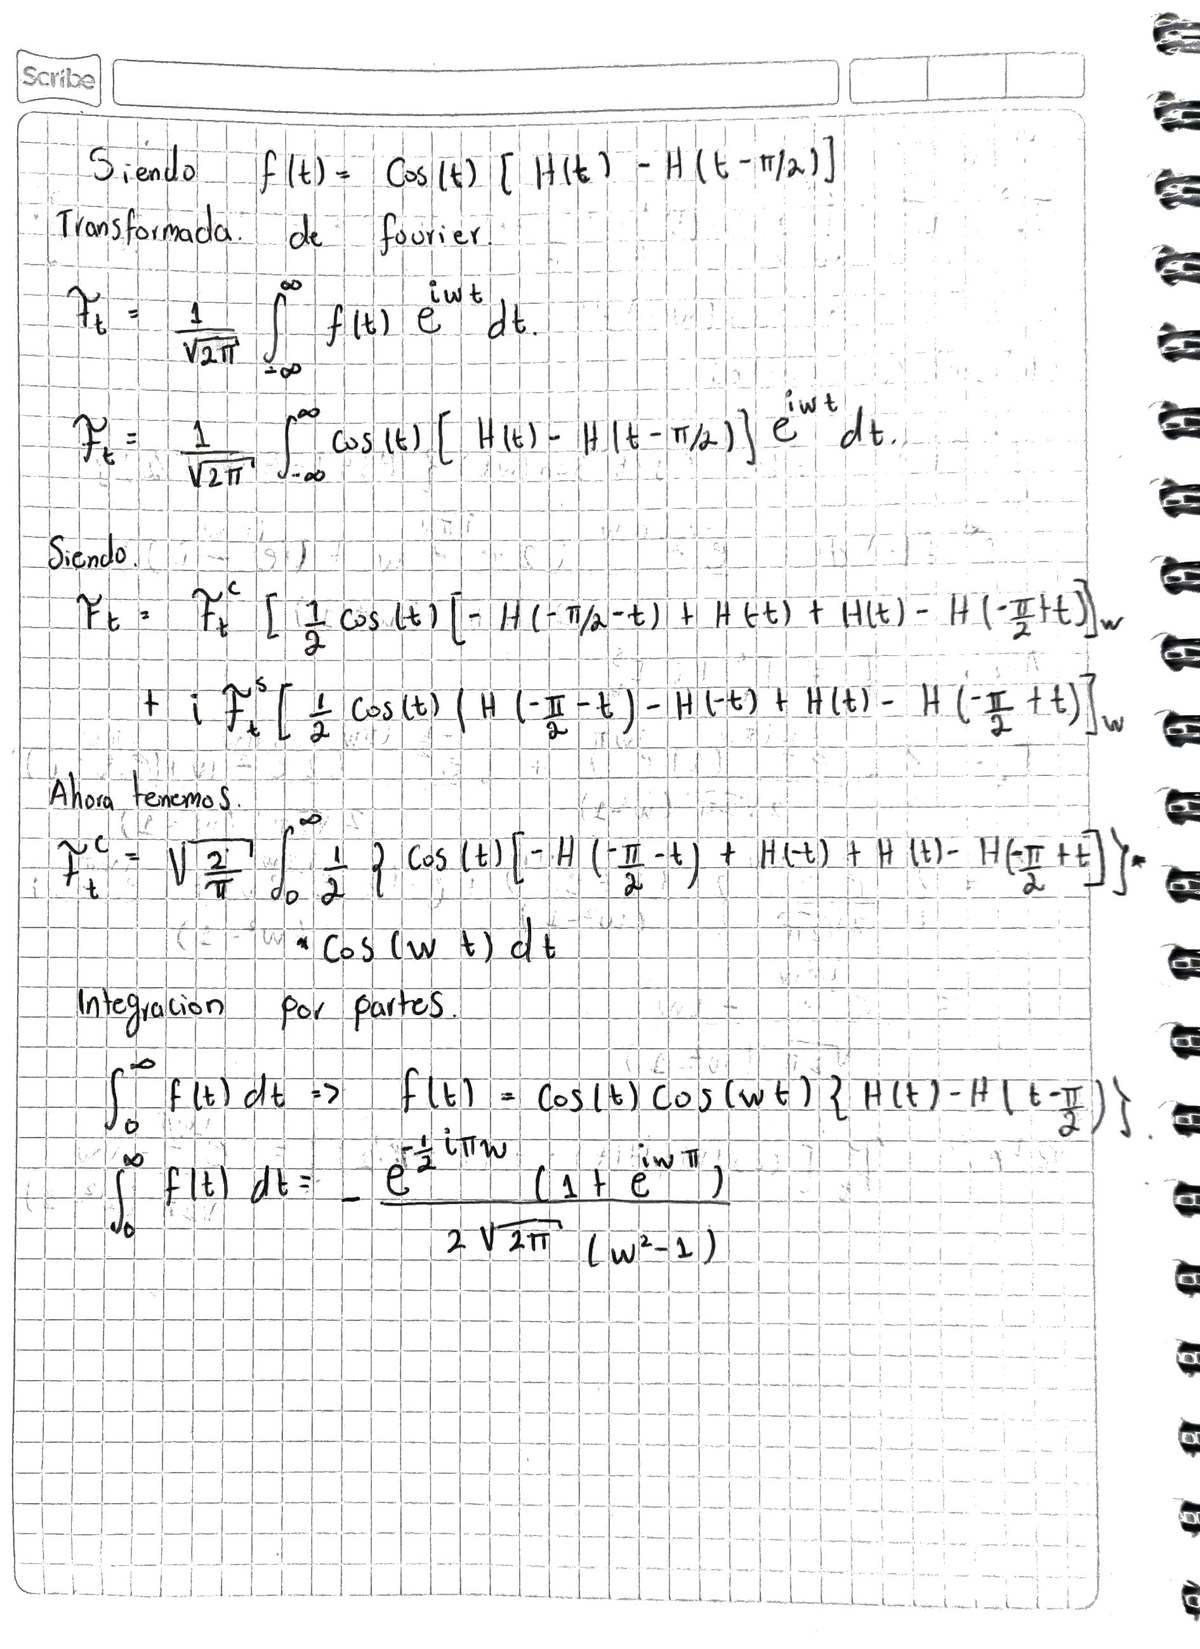 Scribe
Siendo f(t) = Cos(t) [ H(t) - H(t-π/2)]
Transformada. de fourier.
F_t = 1/√2π ∫_{-∞}^{∞} f(t) e^{iwt} dt.
F_t = 1/√2π ∫_{-∞}^{∞} cos(t) [ H(t) - H(t-π/2)] e^{iwt} dt.
Siendo.
F_t = F_t^c [ 1/2 cos(t) [- H(-π/2-t) + H(-t) + H(t) - H(-π/2+t)]]_w
+ i F_t^s [ 1/2 cos(t) ( H (-π/2 - t) - H(-t) + H(t) - H (-π/2 + t)]_w
Ahora tenemos.
F_t^c = √2/π ∫_0^∞ 1/2 { cos(t) [- H (-π/2 -t) + H(-t) + H(t) - H(-π/2 +t] } *
* Cos (w t) dt
Integracion por partes.
∫_0^∞ f(t) dt => f(t) = Cos(t) Cos(wt) { H(t) - H( t-π/2 ) }.
∫_0^∞ f(t) dt = - e^{-1/2 iπw} (1 + e^{iwπ}) / 2√2π (w²-1)